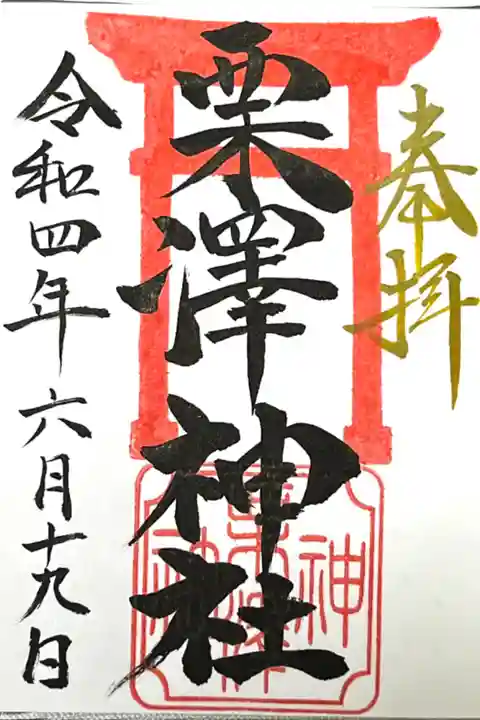 奉拝
栗澤神社
令和四年六月十九日